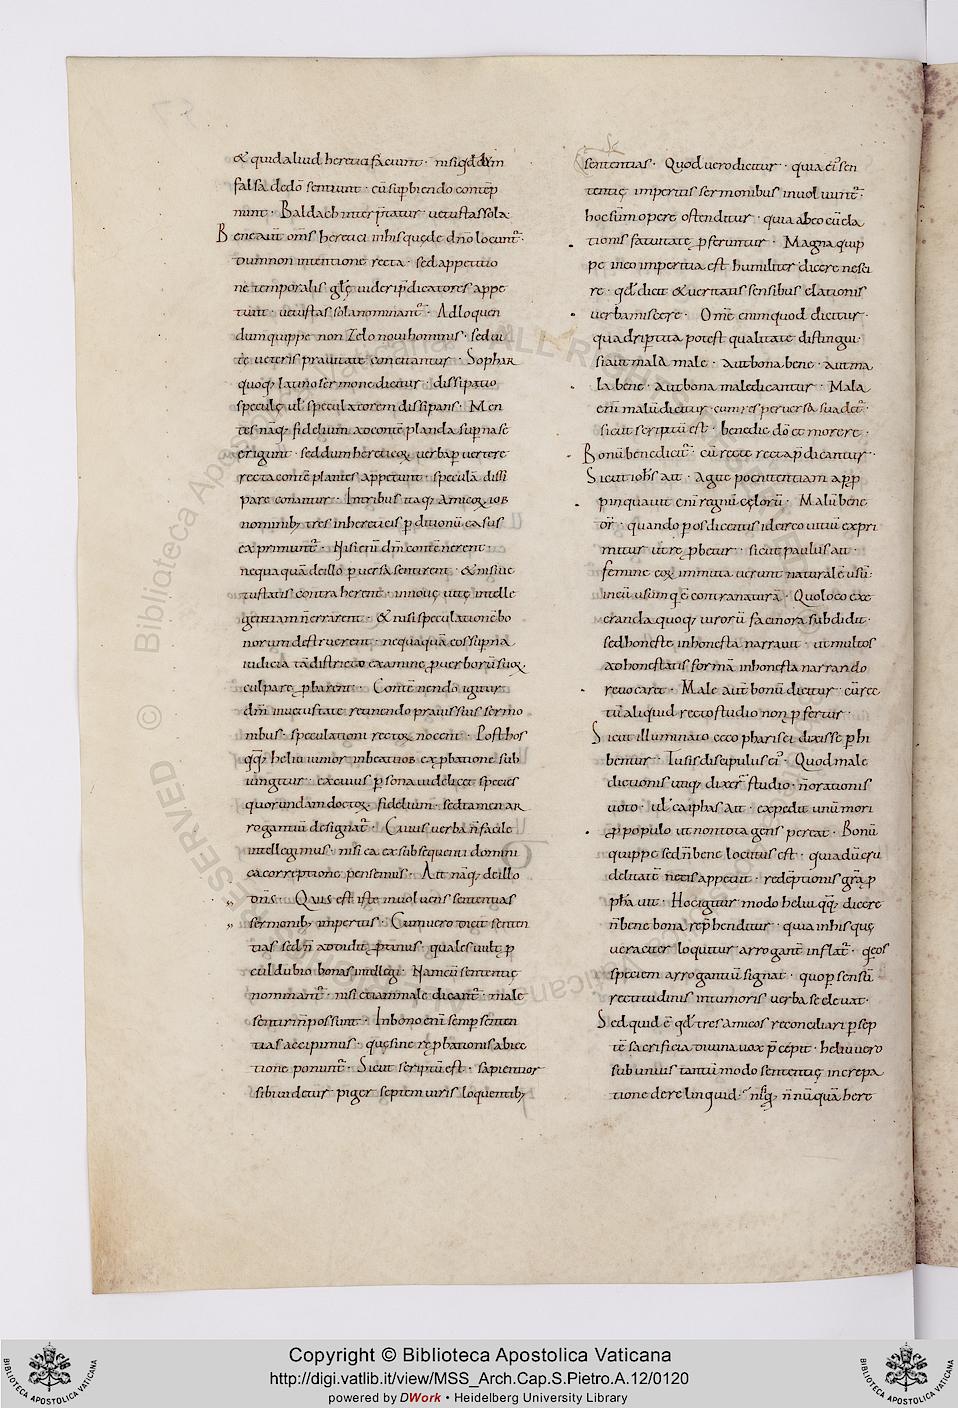 & quid aliud heretici faciunt · nisi qd̄ dm̄
falsa de dō sentiunt · eū supbiendo contēp
nunt · Baldach interp̄tatur · uetustas sola
Bene aut̄ om̄s heretici in his quę de dn̄o locunt̄ ·
dum non intentione recta · sed appetitio
ne temporalis glę uideri p̄dicatores appe
tunt · uetustas sola nominant̄ · Ad loquen
dum quippe non zelo noui hominis · sed ui
tę ueteris prauitate concitantur · Sophar
quoq; latino sermone dicitur · dissipatio
speculę ul' speculatorem dissipans · Men
tes nāq; fidelium ad contēplanda supna se
erigunt · sed dum hereticoꝝ uerba puertere
recta contēplantes appetunt · speculā dissi
pare conantur · In tribus itaq; amicoꝝ iob
nominib; tres in hereticis pditionū casus
exprimunt̄ · Nisi eni dm̄ contēnerent
nequaquā de illo puersa sentirent · & nisi ue
tustatis contraherent · in nouę uitę intelle
gentiam n̄ errarent · & nisi speculationē bo
norum destruerent · nequaquā eos supna
iudicia tā districto examine p uerborū suoꝝ
culpa rep̄barent · Contēnendo igitur
dm̄ in uetustate retinendo prauis suis sermo
nibus · speculationi rectoꝝ nocent · Post hos
qq; heliu iunior in beati iob exp̄batione sub
iungitur · ex cuius psona uidelicet species
quorundam doctoꝝ fidelium · sed tamen ar
rogantiū designat̄ · Cuius uerba n̄ facile
intellegimus · nisi ea ex subsequenti domini
ca correptione pensemus · Ait nāq; de illo
dn̄s · Quis est iste inuoluens sententias
sermonib; imperitis · Cum uero dicit senten
tias sed n̄ addidit ptinus · quales uult; p
cul dubio bonas intellegi · Nam cū sententię
nominant̄ · nisi etiam male dicant̄ · male
sentiri n̄ possunt · In bono eni semp senten
tias accipimus · quę sine rep̄bationis abiec
tione ponunt̄ · Sicut scriptū est · sapientior
sibi uidetur piger septem uiris loquentib;
sententias · Quod uero dicitur · quia ei' sen
tentię imperitis sermonibus inuoluunt̄ ·
hoc sum̄opere ostenditur · quia ab eo cū ela
tionis fatuitate pferuntur · Magna quip
pe in eo imperitia est humiliter dicere nesci
re · qd̄ dicit & ueritatis sensibus elationis
uerba miscere · Om̄e enim quod dicitur ·
quadriptita potest qualitate distingui ·
si aut mala male · aut bona bene · aut ma
la bene · aut bona male dicantur · Mala
eni malū dicitur · cum res peruersa suadet̄ ·
sicut scriptū est · benedic dō et morere ·
Bonū bene dicit̄ · cū recte recta p̄dicantur ·
Sicut ioh̄s ait · Agite poenitentiam app
pinquauit eni regnū cęlorū · Malū bene
dr̄ · quando p os dicentis idcirco uitiū expri
mitur ut rep̄betur · sicut paulus ait ·
femine eoꝝ inmutauerunt naturalē usū :
in eū usum q ē contra naturā · Quo loco exe
cranda quoq; uirorū facinora subdidit ·
sed honeste inhonesta narrauit · ut multos
ad honestatis formā inhonesta narrando
reuocaret · Male aut̄ bonū dicitur · cū rec
tū aliquid recto studio non pfertur ·
Sicut illuminato ceco pharisei dixisse phi
bentur · Tu sis discipulus ei' · Quod male
dictionis utiq; dixer̄ studio · n̄ orationis
uoto · ul' caiphas ait · expedit unū mori
p populo ut non tota gens pereat · Bonū
quippe sed n̄ bene locutus est · quia dū cru
delitatē necis appetiit · redēptionis grā p
phauit · Hoc igitur modo heliu qq; dicere
n̄ bene bona rep̄henditur · quia in his quę
ueraciter loquitur arrogant̄ inflat̄ · q eos
speciem arrogantiū signat · quo p sensū
rectitudinis in tumoris uerba se eleuat ·
Sed quid ē qd̄ tres amicos reconciliari p sep
tē sacrificia diuina uox p̄cepit · heliu uero
sub unius tantūmodo sententię increpa
tione derelinquid · nisi q; n̄ nūquā here
Copyright © Biblioteca Apostolica Vaticana
http://digi.vatlib.it/view/MSS_Arch.Cap.S.Pietro.A.12/0120
powered by DWork • Heidelberg University Library